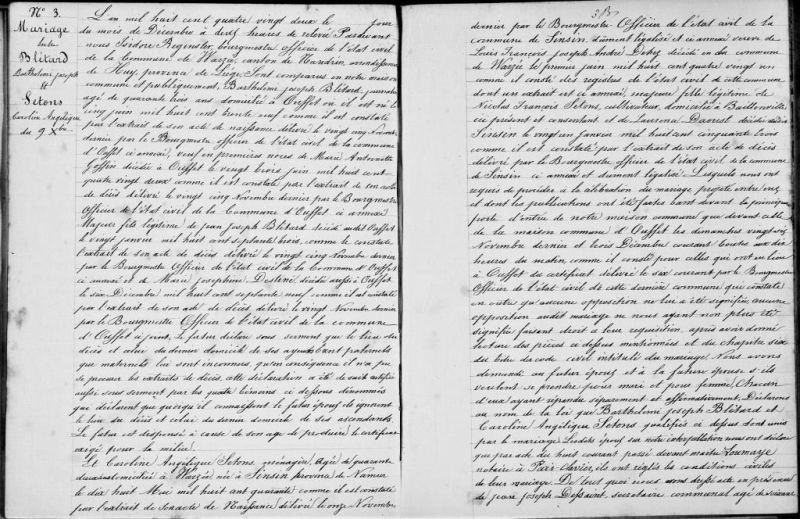 N° 3.
Mariage
entre
Blétard
Barthelemi joseph
et
Setons
Caroline Angélique
du 9 Xbre
L'an mil huit cent quatre vingt deux le jour
du mois de Décembre à deux heures de relevé Pardevant
nous Isidore bourgmestre officier de l'état civil
de la Commune de Warzée canton de Nandrin, arrondissement
de Huy, province de Liége, sont comparus en notre maison
commune et publiquement, Barthelemi Joseph Blétard, journalier
agé de quarante trois ans domicilié à Ouffet où il est né le
cinq juin mil huit cent trente neuf comme il est constaté
par l'extrait de son acte de naissance délivré le vingt cinq Novembre
dernier par le Bourgmestre officier de l'état civil de la commune
d'Ouffet ci annexé, veuf en premières noces de Marie Antoinette
Goffin décédée à Ouffet le vingt trois juin mil huit cent
quatre vingt deux comme il est constaté par l'extrait de son acte
de décès délivré le vingt cinq Novembre dernier par le Bourgmestre
Officier de l'état civil de la Commune d'Ouffet ci annexé
Majeur fils légitime de jean Joseph Blétard décédé audit Ouffet
le vingt janvier mil huit cent septante trois, comme le constate
l'extrait de son acte de décès délivré le vingt cinq Novembre dernier
par le Bourgmestre Officier de l'état civil de la Commune d'Ouffet
ci annexé et de Marie Josephine Destiné décédée aussi à Ouffet
le six Décembre mil huit cent septante neuf comme il est constaté
par l'extrait de son acte de décès délivré le vingt Novembre dernier
par le Bourgmestre Officier de l'état civil de la commune
d'Ouffet ci joint. Le futur déclare sous serment que le lieu du
décès et celui du dernier domicile de ses ayeuls tant paternels
que maternels lui sont inconnus, qu'en conséquence il n'a pu
se procurer les extraits de décès, cette déclaration a été de suite certifiée
aussi sous serment par les quatre témoins ci dessous dénommés
qui déclarent que quoiqu'il connaissent le futur époux ils ignorent
le lieu du décès et celui du dernier domicile de ses ascendants.
Le futur est dispensé à cause de son age de produire le certificat
exigé pour la milice.
Et Caroline Angélique Setons ménagère, agée de quarante
deux ans domiciliée à Warzée née à Sinsin province de Namur
le dix huit Mai mil huit cent quarante comme il est constaté
par l'extrait de son acte de Naissance délivré le onze Novembre
dernier par le Bourgmestre Officier de l'état civil de la
commune de Sinsin, dûment légalisé et ci annexé veuve de
Louis François Joseph André décédé en la commune
de Warzée le premier juin mil huit cent quatre vingt un
comme il conste des registres de l'état civil de cette commune
dont un extrait est ci annexé, majeure fille légitime de
Nicolas François Setons, cultivateur, domicilié à Baillonville
ici présent et consentant et de Laurence décédée audit
Sinsin le vingt un janvier mil huit cent cinquante trois
comme il est constaté par l'extrait de son acte de décès
délivré par le Bourgmestre, officier de l'état civil de la commune
de Sinsin ci annexé et dûment légalisé. Lesquels nous ont
requis de procéder à la célébration du mariage projeté entre eux
et dont les publications ont été faites tant devant la principale
porte d'entrée de notre maison commune que devant celle
de la maison commune d'Ouffet les dimanches vingt six
Novembre dernier et trois Décembre courant toutes aux dix
heures du matin, comme il conste pour celles qui ont eu lieu
à Ouffet du certificat délivré le six courant par le Bourgmestre
Officier de l'état civil de cette dernière commune qui constate
en outre qu'aucune opposition ne lui a été signifiée, aucune
opposition audit mariage ne nous ayant non plus été
signifiée faisant droit à leur requisition, après avoir donné
lecture des pièces ci dessus mentionnées et du chapitre six
du titre du code civil intitulé du mariage. Nous avons
demandé au futur époux et à la future épouse s'ils
veulent se prendre pour mari et pour femme, chacun
d'eux ayant répondu séparément et affirmativement, Déclarons
au nom de la loi que Barthelemi Joseph Blétard et
Caroline Angélique Setons qualifiés ci dessus sont unis
par le mariage. Lesdits époux sur notre interpellation nous ont déclaré
que par acte du huit courant passé devant maître
notaire à ils ont réglés les conditions civiles
de leur mariage. De tout quoi nous avons dressé acte en présence
de jean joseph Dessaint, secrétaire communal agé de